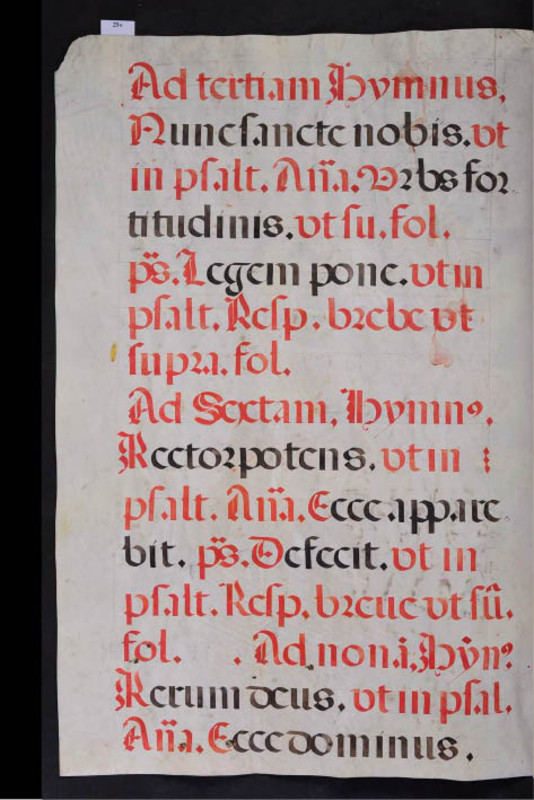 Ad tertiam Hymnus,
Nunc sancte nobis. vt
in psalt. Añ̃a. Vrbs for
titudinis. vt su. fol.
ps̃. Legem pone. vt in
psalt. Resp. brebe vt
supra. fol.
Ad Sextam, Hymnꝰ.
Rector potens. vt in
psalt. Añ̃a. Ecce appare
bit. ps̃. Defecit. vt in
psalt. Resp. breue vt sũ.
fol. . Ad nonã, Hỹnꝰ
Rerum deus. vt in psal.
Añ̃a. Ecce dominus.